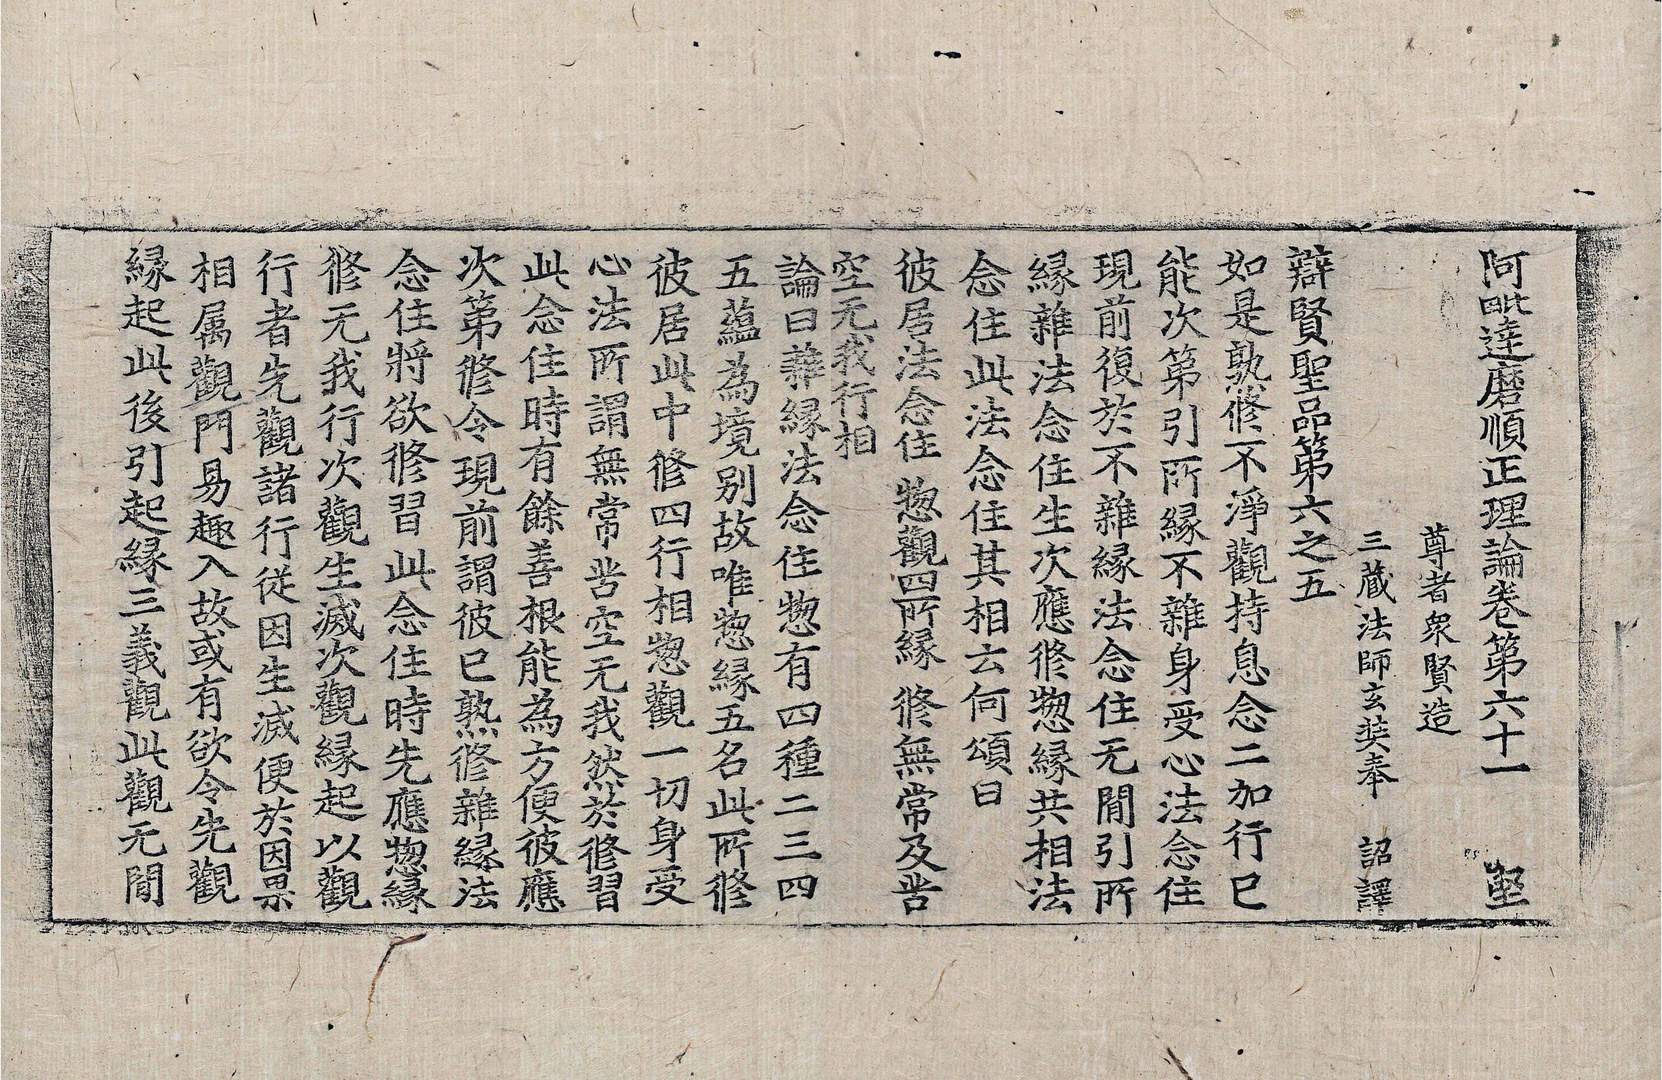 阿毗達磨順正理論卷第六十一 堅
尊者衆賢造
三藏法師玄奘奉 詔譯
辯賢聖品第六之五
如是熟修不淨觀持息念二加行已
能次第引所縁不雜身受心法念住
現前復於不雜縁法念住无閒引所
縁雜法念住生次應修惣縁共相法
念住此法念住其相云何頌曰
彼居法念住 惣觀四所縁 修無常及苦
空无我行相
論曰雜縁法念住惣有四種二三四
五蘊為境別故唯惣縁五名此所修
彼居此中修四行相惣觀一切身受
心法所謂無常苦空无我然於修習
此念住時有餘善根能為方便彼應
次第修令現前謂彼已熟修雜縁法
念住將欲修習此念住時先應惣縁
修无我行次觀生滅次觀縁起以觀
行者先觀諸行從因生滅便於因果
相属觀門易趣入故或有欲令先觀
縁起此後引起縁三義觀此觀无閒